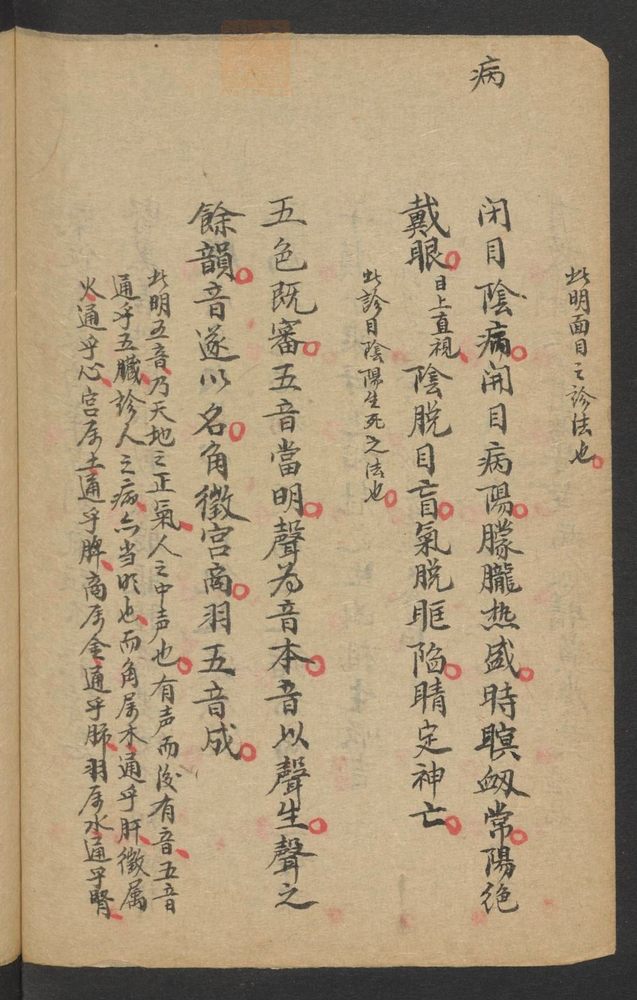 病
此明面目之診法也
閉目陰病開目病陽朦朧热盛時瞑衂常陽绝
戴眼目上直視陰脱目盲氣脱眶陷睛定神亡
此診目陰陽生死之法也
五色既審五音當明聲为音本音以聲生聲之
餘韻音遂以名角徵宫商羽五音成
此明五音乃天地之正氣人之中声也有声而後有音五音
通乎五臓診人之病亦当明也而角属木通乎肝徵属
火通乎心宫属土通乎脾商属金通乎肺羽属水通乎腎